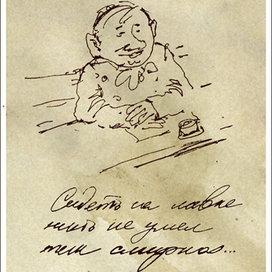 Сидеть на лавке
никто не умел
так смирно...